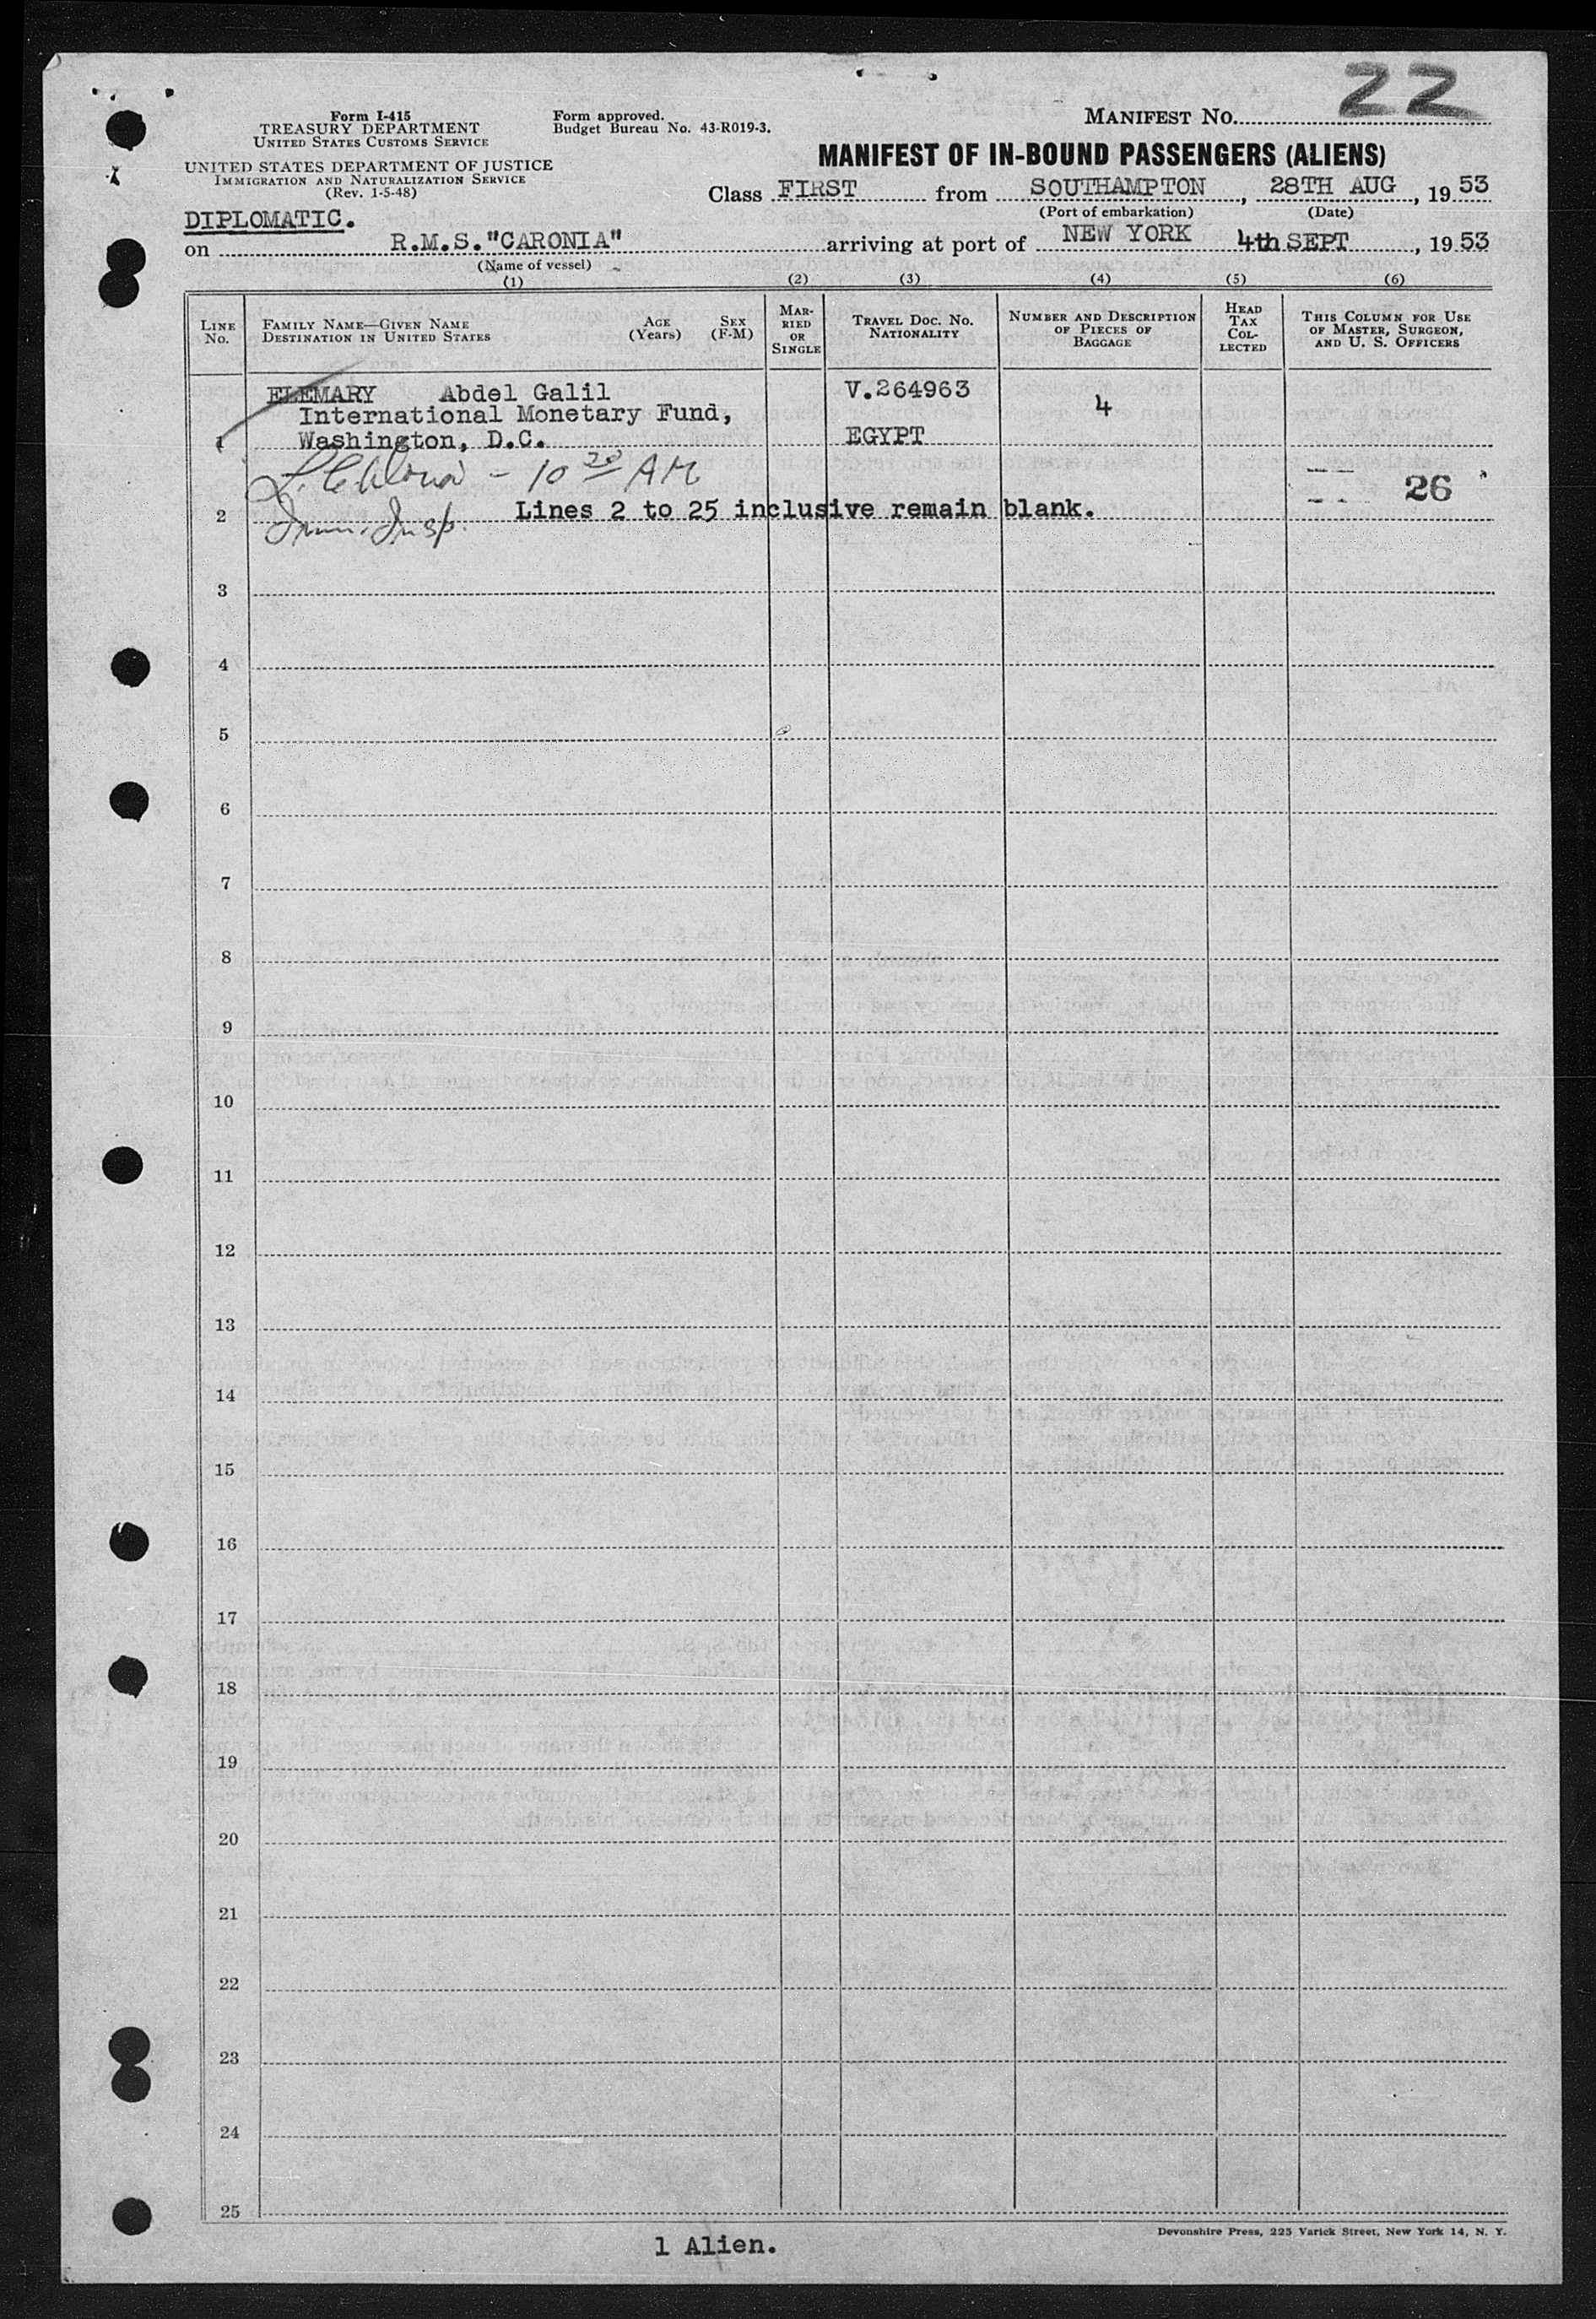 22
MANIFEST NO.
Form I-415
TREASURY DEPARTMENT
UNITED STATES CUSTOMS SERVICE
Form approved.
Budget Bureau No. 43-R019-3.
UNITED STATES DEPARTMENT OF JUSTICE
IMMIGRATION AND NATURALIZATION SERVICE
(Rev. 1-5-48)
MANIFEST OF IN-BOUND PASSENGERS (ALIENS)
Class FIRST from SOUTHAMPTON, 28TH AUG, 1953
(Port of embarkation) (Date)
DIPLOMATIC.
on R.M.S. "CARONIA" arriving at port of NEW YORK 4th SEPT, 1953
(Name of vessel)
(1) (2) (3) (4) (5) (6)
LINE NO. FAMILY NAME—GIVEN NAME DESTINATION IN UNITED STATES AGE (Years) SEX (F-M) MARRIED OR SINGLE TRAVEL DOC. NO. NATIONALITY NUMBER AND DESCRIPTION OF PIECES OF BAGGAGE HEAD TAX COLLECTED THIS COLUMN FOR USE OF MASTER, SURGEON, AND U. S. OFFICERS
ELEMARY Abdel Galil V.264963 4
International Monetary Fund,
1 Washington, D.C. EGYPT
- 10 20 AM
26
2 Imm. Insp. Lines 2 to 25 inclusive remain blank.
3
4
5
6
7
8
9
10
11
12
13
14
15
16
17
18
19
20
21
22
23
24
25
Devonshire Press, 225 Varick Street, New York 14, N. Y.
1 Alien.